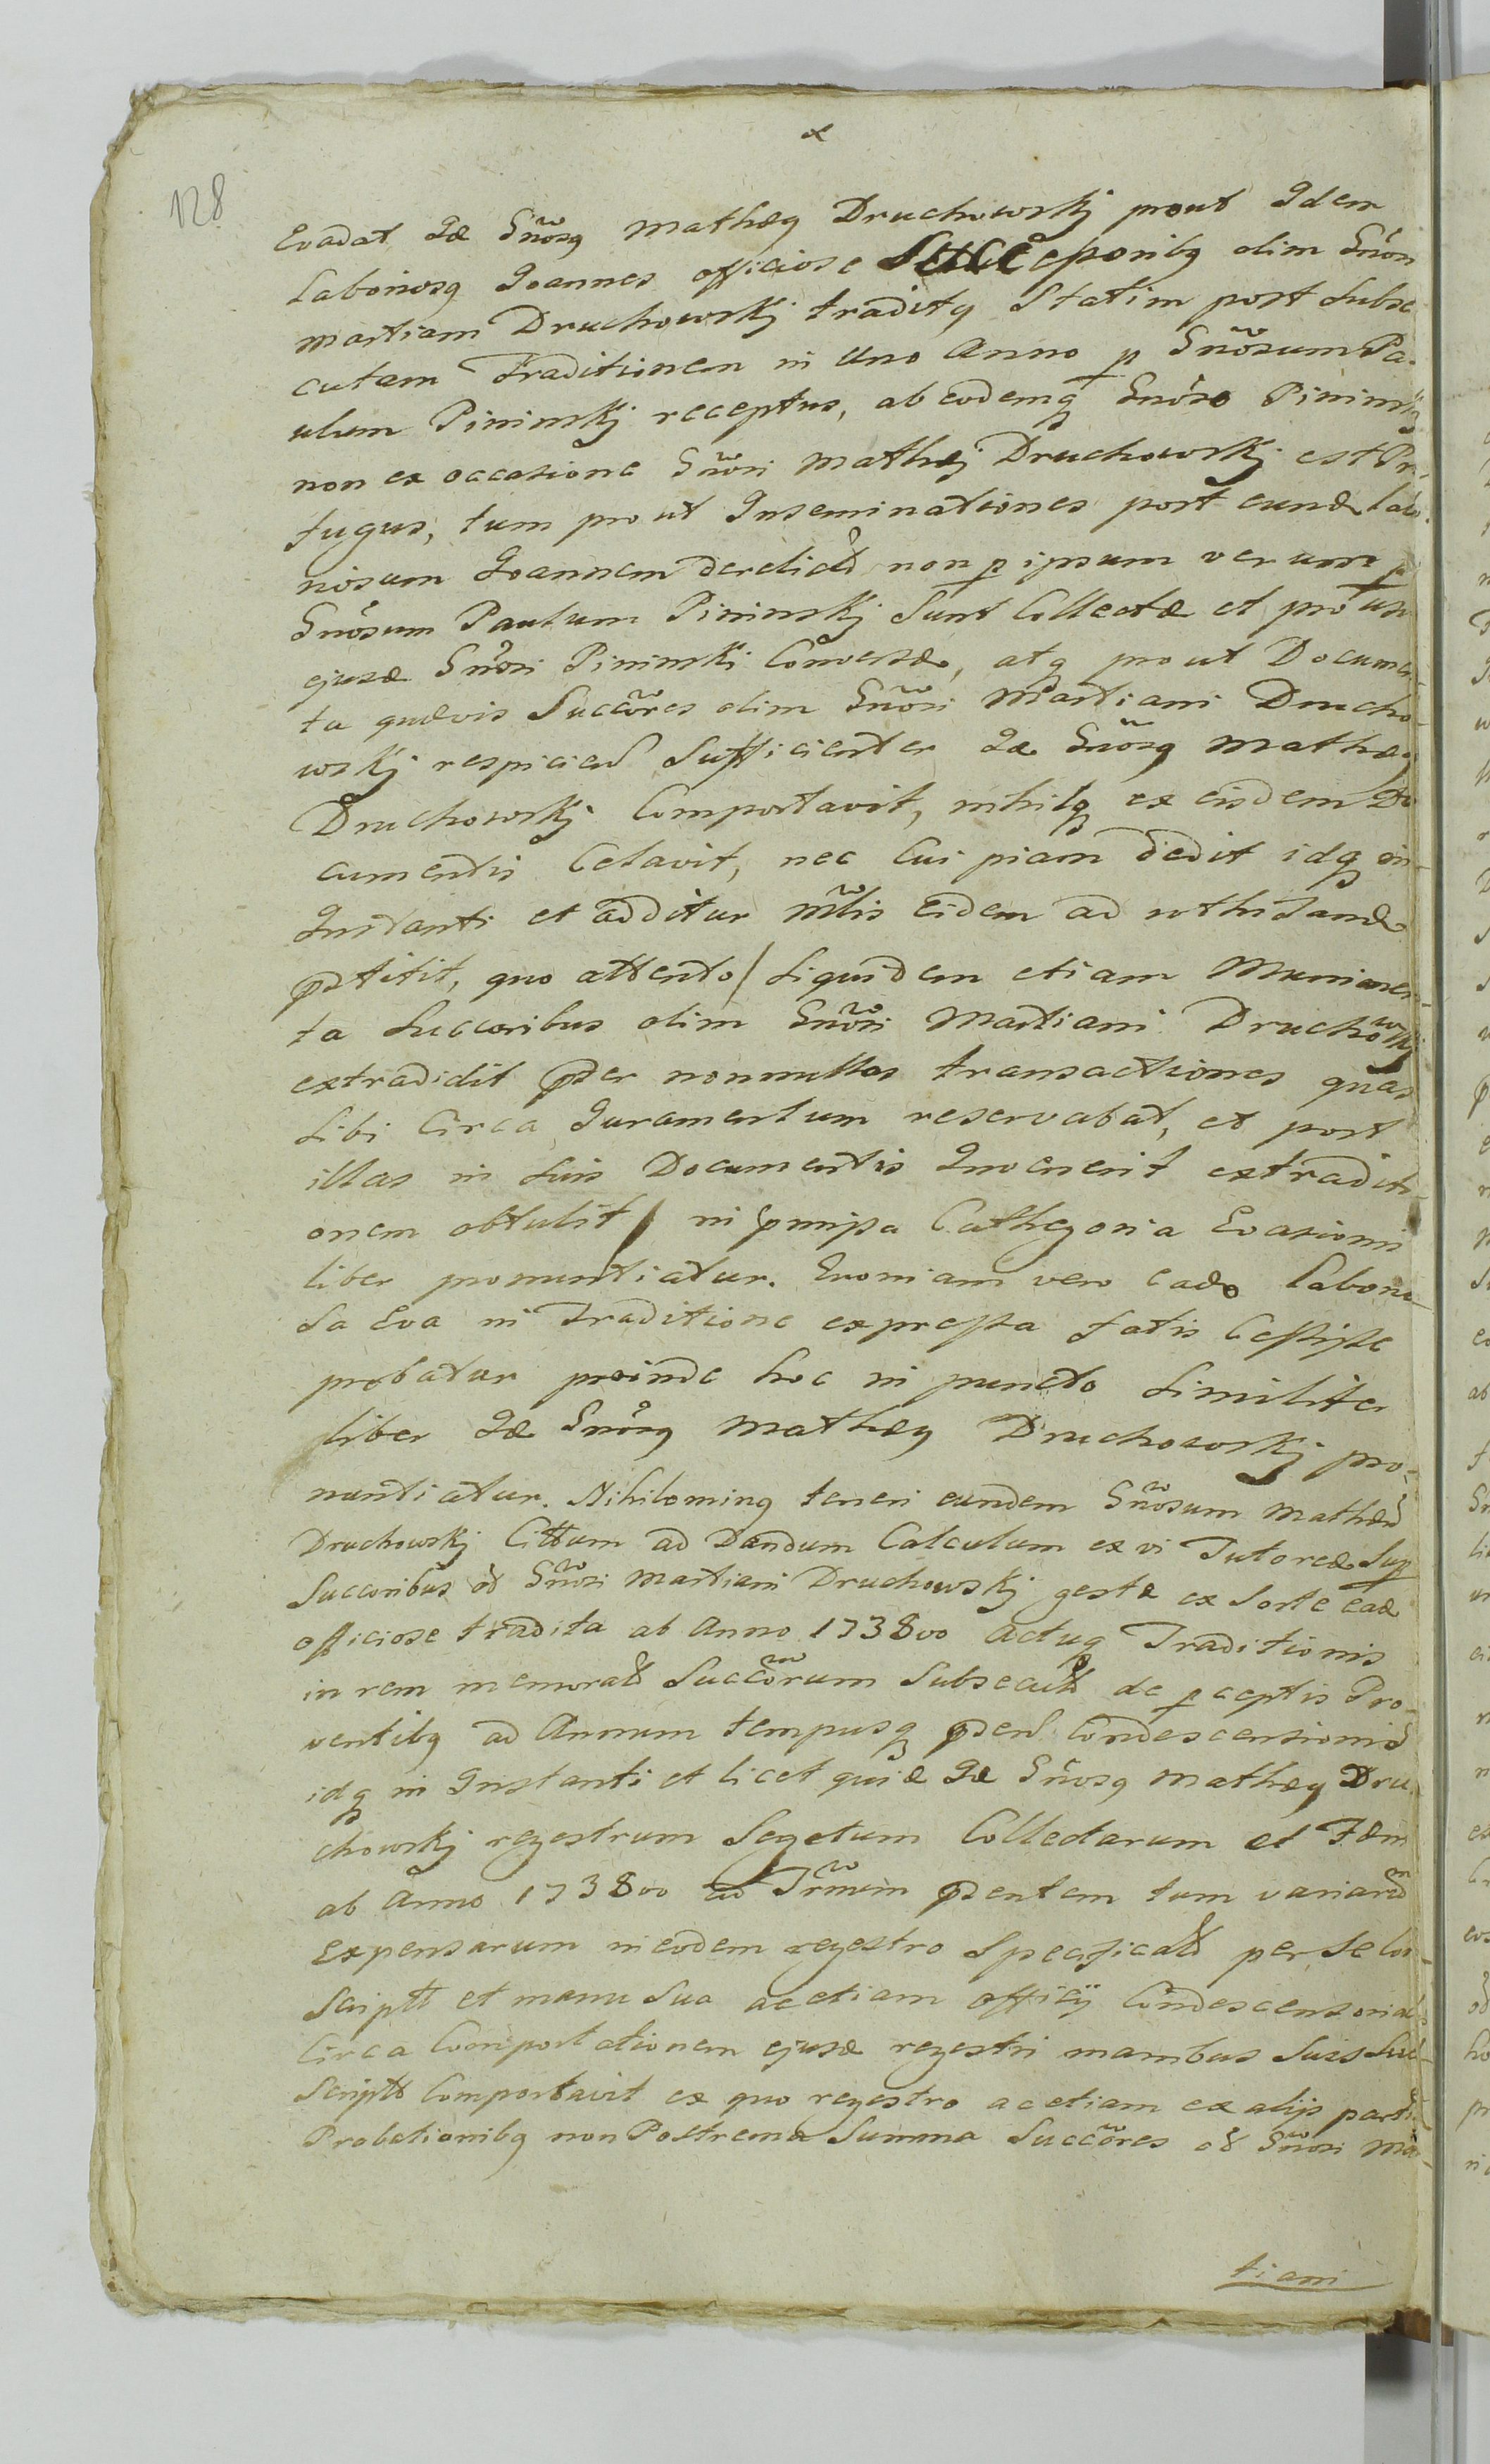 128
Evadat Idẽ Gñosq Mathæq Druchowskj prout Idem
Laboriosq Joannes officiose Succeporibq olim Gñosi
Martiam Druchowskj traditq Statim post Subse
cutam Traditionem in Uno Anno p Gñosum Pa-
ulum Pininskj receptus, ab eodemq Gñoso Pininskj
non ex occasione Gñosi Mathej Druchowskj est Pro
fugus, tum prout Inseminationes post eund labo
riosum Joannem derelictæ non p ipsum verum p
Gñosum Paulum Pininskj Sunt Collectæ et pro usu
ejusd Gñosi Pininski Conversæ, atq prout Documen
ta quævis Succõres olim Gñosi Martiani Drucho
wskj respicien Sufficienter Idẽ Gñosq Mathæq
Druchowskj Comportavit, nihilq ex eisdem Do
cumentis Celavit, nec Cuipiam dedit idq in
Instanti et additur Mlis Eidem ad rothŝand
pstitit, quo attento / Siquidem etiam Munimen
ta Succoribus olim Gñosi Martiani Druchowskj
extradidit pter nonnullas transactiones quas
Sibi Circa Juramentum reservabat, et post
illas in Suis Documentis Invenerit extraditi
onem obtulit / in pmissa Cathegoria Evasionis
liber pronuntiatur. Quoniam vero ead Laborio
sa Eva in Traditione expressa fatis Cessisse
probatur proinde hoc in puncto Similiter
liber Idẽ Gñosq Mathæq Druchowskj pro-
nuntiatur. Nihilominq teneri eundem Gñosum Mathæũ
Druchowskj Cittum ad Dandum Calculum ex vi Tutoreæ Sup
Succoribus oĩ Gñosi Martiani Druchowskj gestæ ex Sorte ead
officiose tradita ab Anno 1738vo actuq Traditionis
in rem memorat Succõrum Subsecuta de pceptis Pro-
ventibq ad Annum tempusq psens Condescensionis
idq in Instanti et licet quid Idẽ Gñosq Mathæq Dru
chowskj regestrum Segetum Collectarum et Fæni
ab Anno 1738vo ad Trñum psentem tum variarũ
Expensarum in eodem regestro Specificat per Se Con
Script et manu Sua ac etiam officij Condescensorialis
Circa Comportationem ejusd regestri manibus Suis Sub
Script Comportavit ex quo regestro ac etiam ex alijs parti
Probationibq non Postrema Summa Succõres oĩ Gñosi Mar
tiani